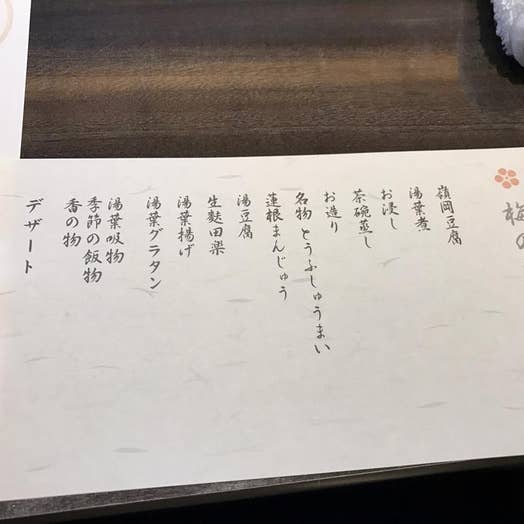 梅の
嶺岡豆腐
湯葉煮
お浸し
茶碗蒸し
お造り
名物とうふしゅうまい
蓮根まんじゅう
湯豆腐
生麩田楽
湯葉揚げ
湯葉グラタン
湯葉吸物
季節の飯物
香の物
デザート